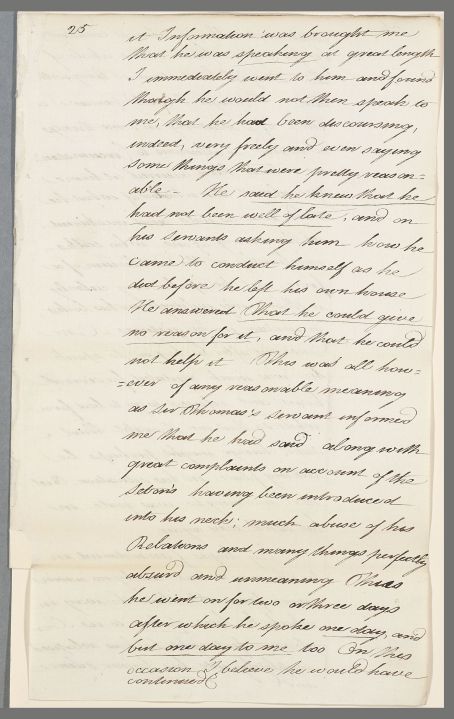 25
it Information was brought me
that he was speaking at great length
I immediately went to him and found
though he would not then speak to
me, that he had been discoursing,
indeed, very freely and even saying
some things that were pretty reason=
able - He said he knew that he
had not been well of late, and on
his servants asking him how he
came to conduct himself as he
did before he left his own house
He answered That he could give
no reason for it, and that he could
not help it This was all how=
=ever of any reasonable meaning
as Sir Thomas's servant informed
me that he had said along with
great complaints on account of the
Seton's having been introduced
into his neck; much abuse of his
Relations and many things perfectly
absurd and unmeaning Thus
he went on for two or three days
after which he spoke one day, and
but one day to me too On this
occasion I believe he would have
continued